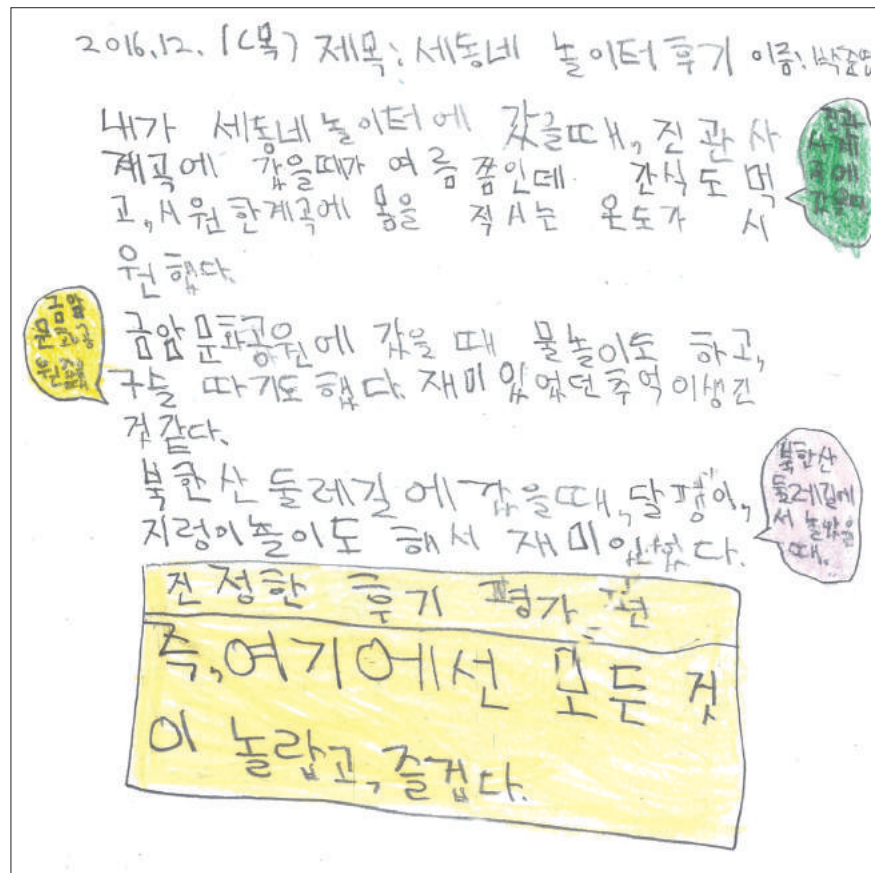 2016.12.1(목) 제목: 세동네 놀이터 후기 이름: 박준영
내가 세동네놀이터에 갔을때, 진관사
계곡에 갔을때가 여름쯤인데 간식도 먹
고, 시원한계곡에 몸을 적시는 온도가 시
원했다.
진관
사계
곡에
갔을때
금암문화공원에 갔을 때 물놀이도 하고,
구슬 따기도 했다. 재미있었던추억이생긴
것같다.
금암
문화공
원
북한산 둘레길에갔을때, 달팽이,
지렁이놀이도 해서 재미있었다.
북한산
둘레길에
서 놀았을
때.
진정한 후기 평가
즉, 여기에선 모든 것
이 놀랍고, 즐겁다.